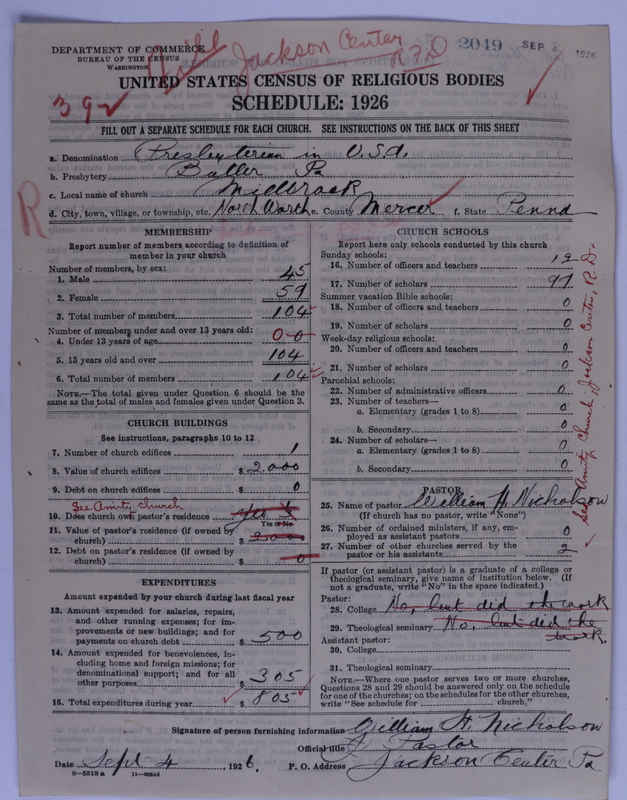 DEPARTMENT OF COMMERCE
BUREAU OF THE CENSUS
WASHINGTON
Jackson Center
R.D
2049 SEP 4 1926
392
UNITED STATES CENSUS OF RELIGIOUS BODIES
SCHEDULE: 1926
FILL OUT A SEPARATE SCHEDULE FOR EACH CHURCH. SEE INSTRUCTIONS ON THE BACK OF THIS SHEET
a. Denomination Presbyterian in U.S.A.
b. Presbytery Butler Pa
c. Local name of church Millbrook
R
d. City, town, village, or township, etc. North Worth e. County Mercer f. State Penna
MEMBERSHIP
Report number of members according to definition of member in your church
Number of members, by sex:
1. Male 45
2. Female 59
3. Total number of members 104
Number of members under and over 13 years old:
4. Under 13 years of age 0-0
5. 13 years old and over 104
6. Total number of members 104
NOTE.—The total given under Question 6 should be
same as the total of males and females given under Question 3.
CHURCH BUILDINGS
See instructions, paragraphs 10 to 12
7. Number of church edifices 1
8. Value of church edifices $ 2000
9. Debt on church edifices $ 0
See Amity Church
10. Does church own pastor's residence Yes
Yes or No
11. Value of pastor's residence (if owned by
church) $ 2000
12. Debt on pastor's residence (if owned by
church) $ 0
EXPENDITURES
Amount expended by your church during last fiscal year
13. Amount expended for salaries, repairs,
and other running expenses; for im-
provements or new buildings; and for
payments on church debt $ 500
14. Amount expended for benevolences, in-
cluding home and foreign missions; for
denominational support; and for all
other purposes $ 305
15. Total expenditures during year $ 805
CHURCH SCHOOLS
Report here only schools conducted by this church
Sunday schools:
16. Number of officers and teachers 12
17. Number of scholars 97
Summer vacation Bible schools:
18. Number of officers and teachers 0
19. Number of scholars 0
Week-day religious schools:
20. Number of officers and teachers 0
21. Number of scholars 0
Parochial schools:
22. Number of administrative officers 0
23. Number of teachers—
a. Elementary (grades 1 to 8) 0
b. Secondary 0
24. Number of scholars—
a. Elementary (grades 1 to 8) 0
b. Secondary 0
PASTOR
25. Name of pastor William H. Nicholson
(If church has no pastor, write "None")
26. Number of ordained ministers, if any, em-
ployed as assistant pastors 0
27. Number of other churches served by the
pastor or his assistants 2
If pastor (or assistant pastor) is a graduate of a college or
theological seminary, give name of institution below. (If
not a graduate, write "No" in the space indicated.)
Pastor:
28. College No, but did the work
29. Theological seminary No, but did the
work.
Assistant pastor:
30. College
31. Theological seminary
NOTE.—Where one pastor serves two or more churches,
Questions 28 and 29 should be answered only on the schedule
for one of the churches; on the schedules for the other churches,
write "See schedule for church."
See Amity Church, Jackson Center, R.D.
Signature of person furnishing information William H. Nicholson
Official title Pastor
Date Sept 4, 1926. P. O. Address Jackson Center Pa
8-5318 a